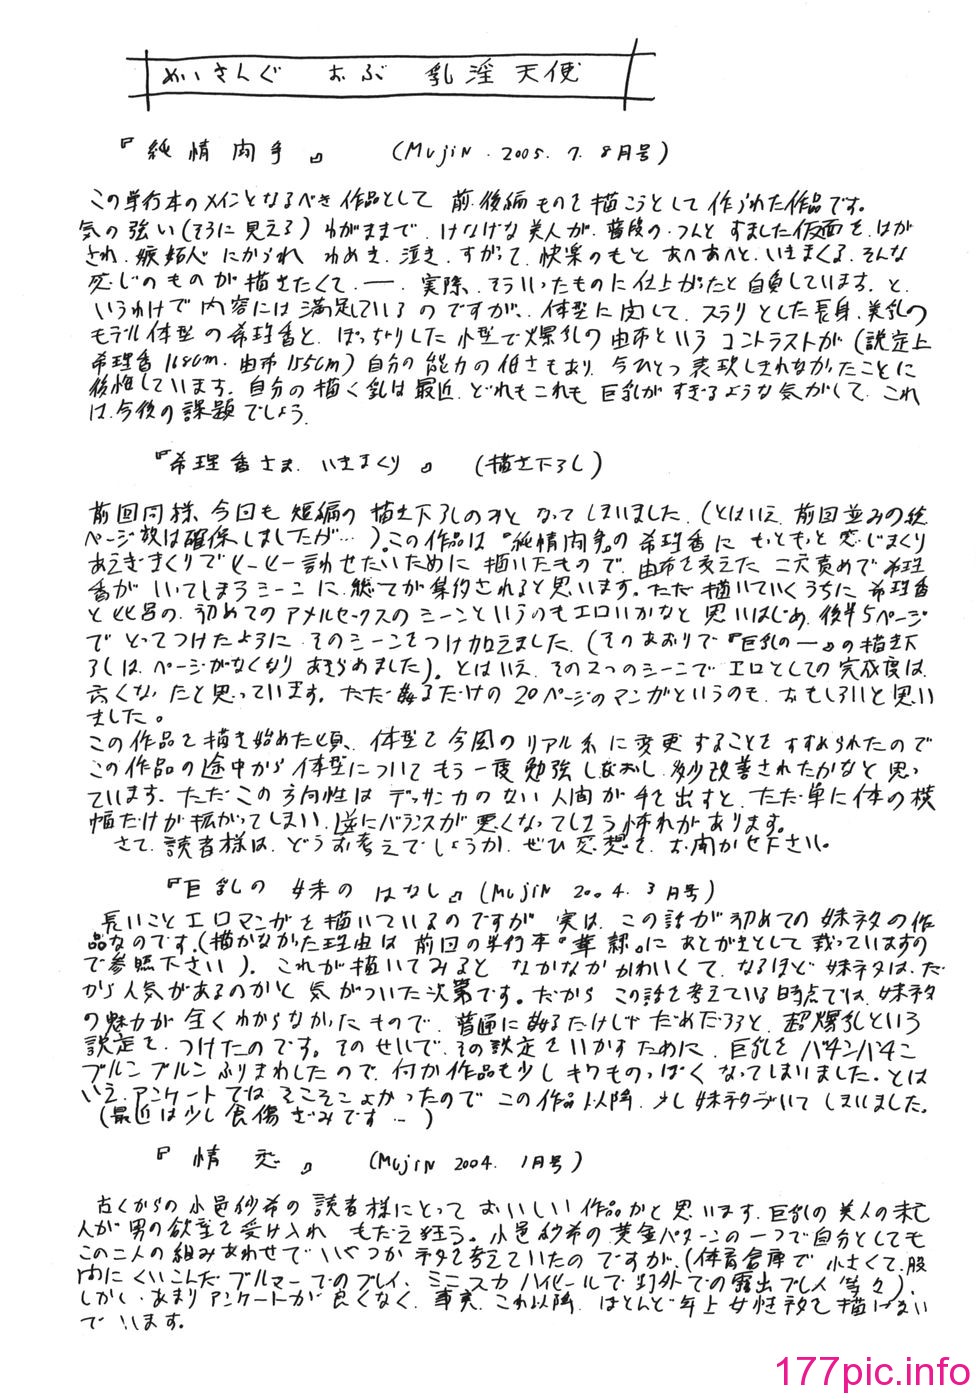 めいきんぐ おぶ 乳淫天使
『純情肉手』 (MUJIN 2005.7.8月号)
この単行本のメインとなるべき作品として 前・後編ものを描こうとして作られた作品です。
気の強い(ように見える)わがままで、けなげな美人が、普段の、つんとすました仮面を、はが
され、嫉妬心にかられ、わめき、泣き、すがって、快楽のもと あへあへと、いきまくる、そんな
感じのものが描きたくて、―、実際、そういったものに仕上がったと自負しています。と、
いうわけで内容には満足しているのですが、体型に関して、スラリとした長身、美乳の
モデル体型の希理香と、ぽっちゃりした小型で爆乳の由布というコントラストが(設定上
希理香168cm、由布155cm)自分の能力の低さもあり、今ひとつ表現しきれなかったことに
後悔しています。自分の描く乳は最近、どれもこれも巨乳がすぎるような気がして、これ
は、今後の課題でしょう。
『希理香さま、いきまくり』 (描き下ろし)
前回同様、今回も短編の描き下ろしのみとなってしまいました。(とはいえ、前回並みの総
ページ数は確保しましたが…)。この作品は『純情肉手』の希理香に もともと感じまくり
あえぎまくりでヒーヒー言わせたいために描いたもので、由布を交えた二穴責めで希理
香がいてしまうシーンに、総てが集約されると思います。ただ描いていくうちに希理香
と 初めてのアナルセックスのシーンというのもエロいかなと思いはじめ、後半5ページ
でとってつけたようにそのシーンをつけ加えました。(そのあおりで『巨乳の―』の描き下
ろしは、ページがなくなりあきらめました)。とはいえ、その2つのシーンでエロとしての完成度は
高くなったと思っています。ただヤるだけの20ページのマンガというのも、おもしろいと思い
ました。
この作品を描き始めた頃、体型を今風のリアル系に変更することをすすめられたので
この作品の途中から体型についてもう一度勉強しなおし、多少改善されたかなと思っ
ています。ただこの方向性はデッサン力のない人間が手を出すと、ただ単に体の横
幅だけが拡がってしまい、逆にバランスが悪くなってしまう怖れがあります。
さて、読者様は、どうお考えでしょうか。ぜひ感想を、お聞かせ下さい。
『巨乳の妹のはなし』(MUJIN 2004.3月号)
長いことエロマンガを描いているのですが、実は、この話が初めての妹ネタの作
品なのです。(描かなかった理由は前回の単行本『 』にあとがきとして載っていますの
で参照下さい)。これが描いてみると なかなかかわいくて、なるほど妹ネタは、だ
から人気があるのかと気がついた次第です。だから この話を考えている時点では、妹ネタ
の魅力が全くわからなかったもので、普通にヤるだけじゃだめだろうと、超爆乳という
設定を、つけたのです。そのせいで、その設定をいかすために、巨乳をバチンバチン
ブルンブルンふりまわしたので、何か作品も少しキワものっぽくなってしまいました。とは
いえ、アンケートでは、そこそこよかったので この作品以降、少し妹ネタづいてしまいました。
(最近は少し食傷ぎみです…)
『情恋』 (MUJIN 2004.1月号)
古くからの小邑紗希の読者様にとっておいしい作品かと思います。巨乳の美人の未亡
人が男の欲望を受け入れ もだえ狂う。小邑紗希の黄金パターンの一つで自分としても
この二人の組みあわせで いくつかネタを考えていたのですが、(体育倉庫で、小さくて、股
間にくいこんだブルマーでのプレイ、ミニスカハイヒールで、町外での露出プレイ等々)、
しかし、あまりアンケートが良くなく、事実、これ以降、ほとんど年上女性ネタを描けない
でいます。
177pic.info